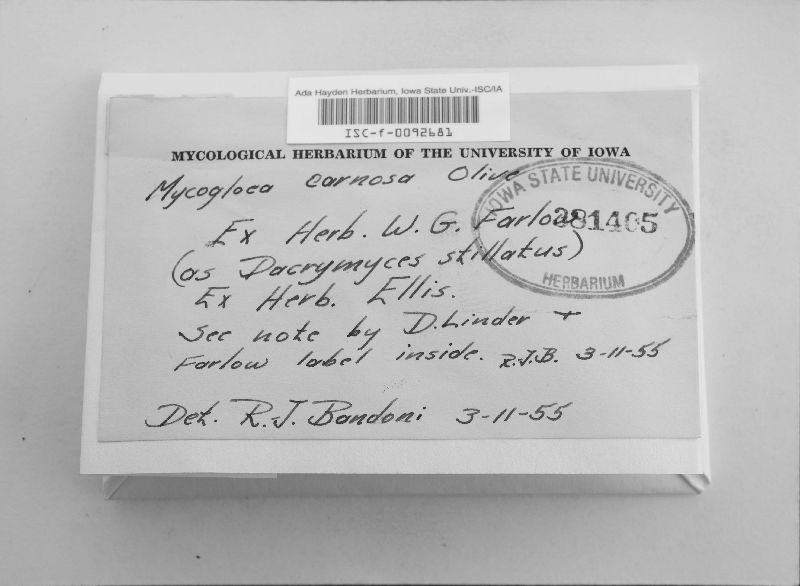 Ada Hayden Herbarium, Iowa State Univ.-ISC/IA
ISC-f-0092681
MYCOLOGICAL HERBARIUM OF THE UNIVERSITY OF IOWA
Mycogloea carnosa Olive
IOWA STATE UNIVERSITY
381405
HERBARIUM
Ex Herb. W. G. Farlow
(as Dacrymyces stillatus)
Ex Herb. Ellis.
See note by D. Linder +
Farlow label inside. R.J.B. 3-11-55
Det. R.J. Bandoni 3-11-55